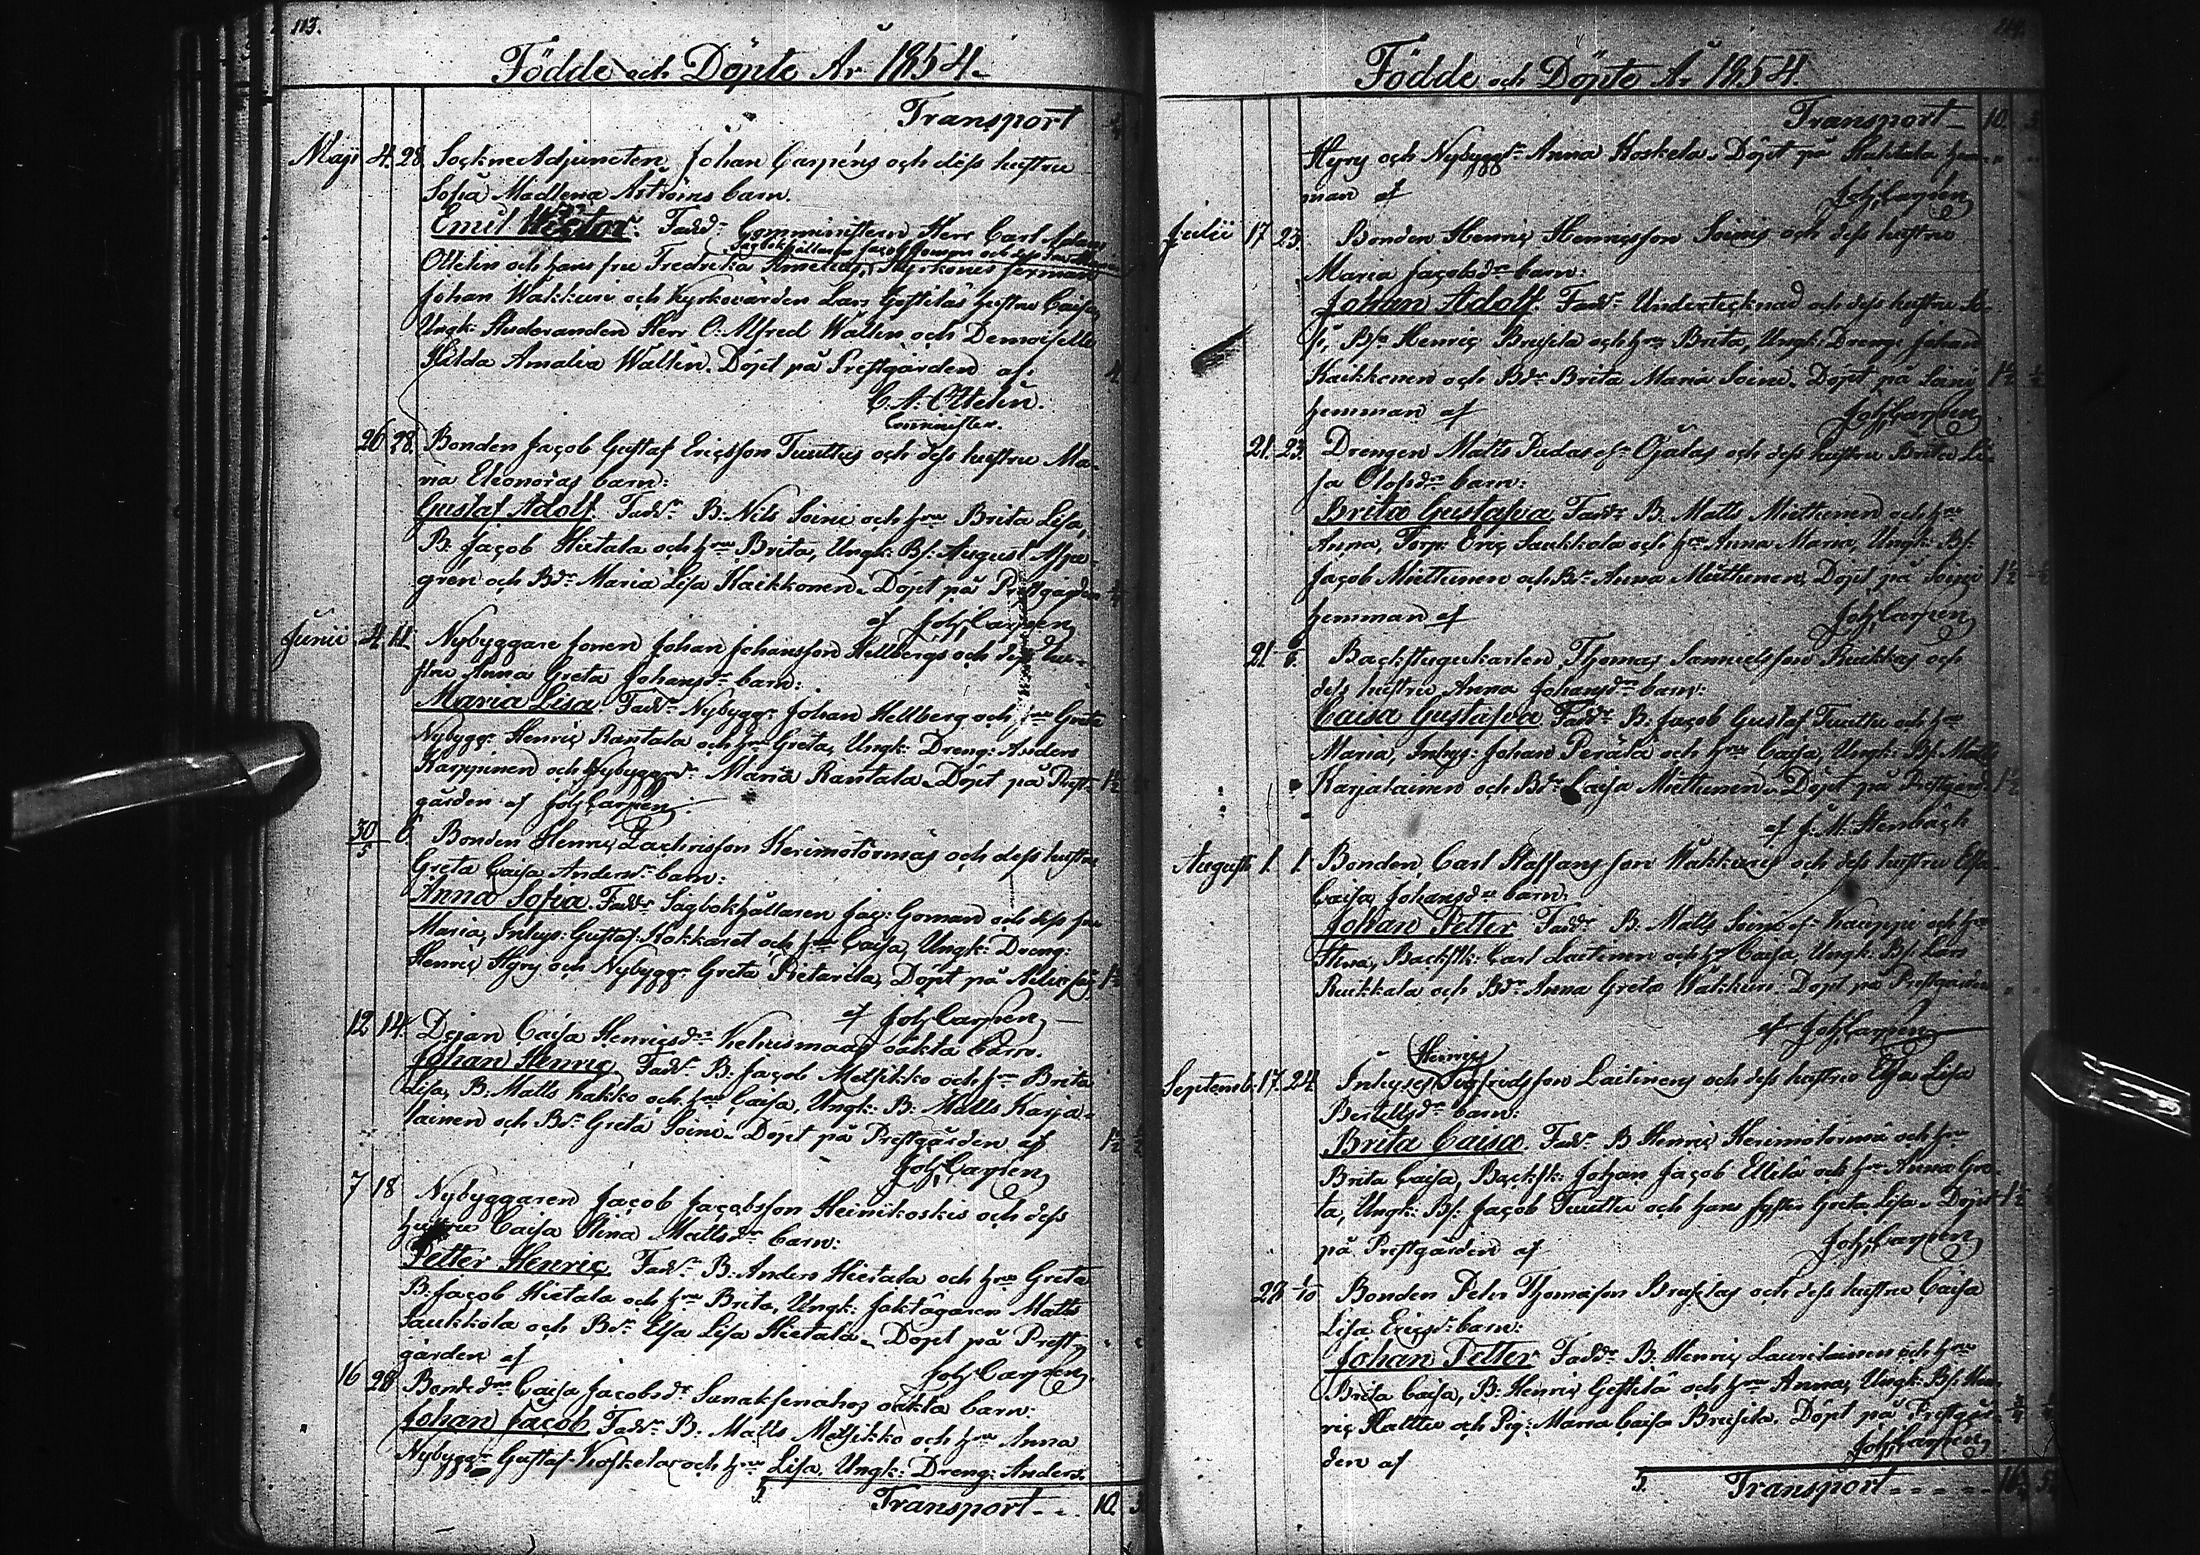 113.
Födde och Döpte År 1854.
Transport
Maji 4. 28. SockneAdjuncten Johan Carpéns och dess hustru
Sofia Madlena barn.
Emil Wictor. Fadd: Comministern Herr Carl
Ottelin och hans fru Fredrika
Johan Wakkuri och Kyrkovärden Lars hustru Caisa,
Ungk: Studeranden Herr C: Alfred Wallin och Demoiselle
Hilda Amalia Wallin. Döpt på Prestgården af
C. A. Ottelin.
Comminister.
26 28. Bonden Jacob Gustaf Ericsson Tuuttus och dess hustru Ma-
ria Eleonoras barn:
Gustaf Adolf. Fadd: B: Nils Soini och h:u Brita Lisa,
B: Jacob Hietala och h:u Brita, Ungk: Bs: August
gren och Bd:r Maria Lisa Kaikkonen. Döpt på Prestgården
af Joh. Carpén
Junii 4. 11. Nybyggare sonen Johan Johansson Hellbergs och dess hu-
stru Anna Greta Johansd:r barn:
Maria Lisa. Fadd: Nybygg: Johan Hellberg och h:u Greta
Nybygg: Henric Rantala och h:u Greta, Ungk: Dreng: Anders
Karppinen och Nybyggd:r Maria Rantala. Döpt på Prest- 1½
gården af Joh. Carpén
30/5 6 Bonden Henric Zachrisson Kerimotörmäs och dess hustru
Greta Caisa Andersd:r barn:
Anna Sofia. Fadd: Sågbokhållaren Jac: Goman och dess fru
Maria, Inhys: Gustaf och h:u Caisa, Ungk: Dreng:
Henric Hyry och Nybygg: Greta Pietarila, Döpt på 1½
af Joh. Carpén
12 14. Dejan Caisa Henricsd:r Kehusmaas oäkta barn.
Johan Henric Fadd: B: Jacob Metsikko och h:u Brita
Lisa, B: Matts och h:u Caisa, Ungk: B: Matts Karja-
lainen och Bd:r Greta Soini. Döpt på Prestgården af 1½
Joh. Carpén
7 18 Nybyggaren Jacob Jacobsson Heinikoskis och dess
hustru Caisa Stina Mattsd:r barn:
Petter Henric Fadd: B: Anders Hietala och h:u Greta
B: Jacob Hietala och h:u Brita, Ungk: Matts
Saukkola och Bd:r Elsa Lisa Hietala. Döpt på Prest-
gården af Joh. Carpén
16 28 Bonded:r Caisa Jacobsd:r oäkta barn:
Johan Jacob Fadd: B: Matts Metsikko och h:u Anna
Nybygg: Gustaf Koskela och h:u Lisa, Ungk: Dreng: Anders
5. Transport 10. 3
Födde och Döpte År 1854.
Transport 10 3
Hyry och Nybyggd:r Anna Koskela. Döpt på hem-
man af Joh. Carpén
Julii 17 23. Bonden Henric Henricsson Soinis och dess hustru
Maria Jacobsd:r barn:
Johan Adolf. Fadd: Undertecknad och dess hustru So-
fi, Bs: Henric Brusila och h:u Brita, Ungk: Dreng: Johan
Kaikkonen och Bd:r Brita Maria Soini. Döpt på Soini 1½ ½
hemman af Joh. Carpén
21. 23. Drengen Matts Pudas och dess hustru Brita Li-
sa Olofsd:r barn:
Brita Gustafva. Fadd: B: Matts Miettunen och h:u
Anna, Torp: Eric Saukkola och h:u Anna Maria, Ungk: Bs:
Jacob Miettunen och Bd:r Anna Miettunen, Döpt på Soini 1½
hemman af Joh. Carpén
21. 6/8 Backstugukarlen Thomas Samuelsson Ruikkas och
dess hustru Anna Johansd:r barn:
Caisa Gustafva Fadd: B: Jacob Gustaf Tuuttu och h:u
Maria, Inhys: Johan Perälä och h:u Caisa, Ungk: Bs: Matts
Karjalainen och Bd:r Caisa Miettunen. Döpt på Prestgård 1½
af J. M. Stenbäck
Augusti 1. 1 Bonden Carl Staffansson Wakkuris och dess hustru Elsa
Caisa Johansd:r barn:
Johan Petter Fadd: B: Matts Soini och h:u
Stina, Backstk: Carl Laitinen och h:u Caisa, Ungk: Bs: Lars
Ruikkala och Bd:r Anna Greta Wakkuri. Döpt på Prestgården
af Joh. Carpén
Henric
Septemb. 17. 24. Inhyses Sigfridsson Laitinens och dess hustru Elsa Lisa
Bertellsd:r barn:
Brita Caisa. Fadd: B: Henric Kerimotörmä och h:u
Brita Caisa, Backstk: Johan Jacob Ellilä och h:u Anna Gre-
ta, Ungk: Bs: Jacob Tuuttu och hans syster Greta Lisa. Döpt 1½
på Prestgården af Joh. Carpén
29. 1/10 Bonden Petter Thomasson Brusilas och dess hustru Caisa
Lisa Ericsd:r barn:
Johan Petter Fadd: B: Henric och h:u
Brita Caisa, B: Henric och h:u Anna, Ungk: Bs: Hen-
ric Kallio och Pig: Maria Caisa Brusila. Döpt på Prestgår-
den af Joh. Carpén
5. Transport